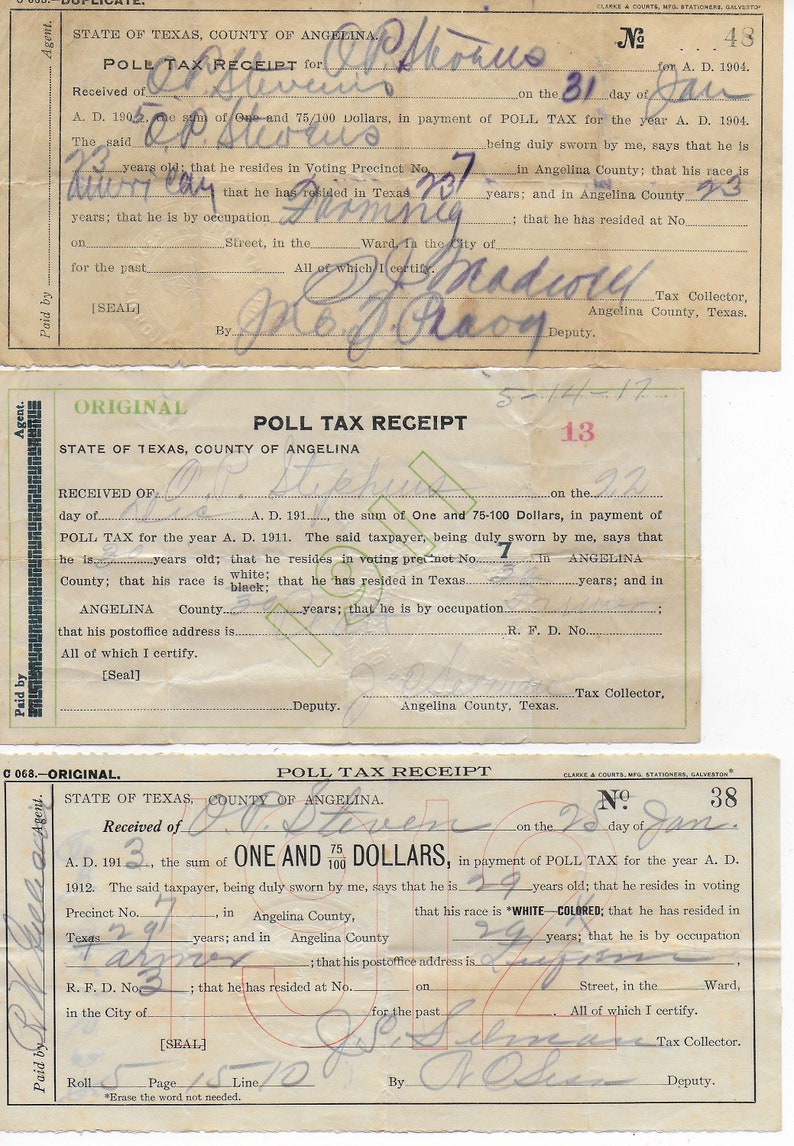 C 068.—DUPLICATE. CLARKE & COURTS, MFG. STATIONERS, GALVESTON
Agent.
STATE OF TEXAS, COUNTY OF ANGELINA. No 48
POLL TAX RECEIPT for O P Stevens for A. D. 1904.
Received of O P Stevens on the 31 day of Jan
A. D. 1905, the sum of One and 75/100 Dollars, in payment of POLL TAX for the year A. D. 1904.
The said O. P. Stevens being duly sworn by me, says that he is
23 years old; that he resides in Voting Precinct No. 7 in Angelina County; that his race is
American that he has resided in Texas 23 years; and in Angelina County 23
years; that he is by occupation Farming; that he has resided at No.
on Street, in the Ward, in the City of
for the past All of which I certify.
Tax Collector,
[SEAL] Angelina County, Texas.
By Deputy.
Paid by
5-14-17
ORIGINAL
Agent.
POLL TAX RECEIPT 13
STATE OF TEXAS, COUNTY OF ANGELINA
RECEIVED OF O. P. Stephens on the 22
day of Dec A. D. 191, the sum of One and 75-100 Dollars, in payment of
POLL TAX for the year A. D. 1911. The said taxpayer, being duly sworn by me, says that
he is 30 years old; that he resides in voting precinct No. 7 in ANGELINA
County; that his race is white; black; that he has resided in Texas 30 years; and in
ANGELINA County 30 years; that he is by occupation Farmer;
that his postoffice address is R. F. D. No.
All of which I certify.
[Seal]
Tax Collector,
Deputy. Angelina County, Texas.
Paid by
1911
C 068.—ORIGINAL. POLL TAX RECEIPT CLARKE & COURTS, MFG. STATIONERS, GALVESTON
Agent.
STATE OF TEXAS, COUNTY OF ANGELINA. No 38
Received of O. P. Steven on the 25 day of Jan.
A. D. 1913, the sum of ONE AND 75/100 DOLLARS, in payment of POLL TAX for the year A. D.
1912. The said taxpayer, being duly sworn by me, says that he is 29 years old; that he resides in voting
Precinct No. 7, in Angelina County, that his race is *WHITE—COLORED; that he has resided in
Texas 29 years; and in Angelina County 29 years; that he is by occupation
Farmer; that his postoffice address is Lufkin,
R. F. D. No. 3; that he has resided at No. on Street, in the Ward,
in the City of for the past. All of which I certify.
[SEAL] J. S. Selman Tax Collector.
Roll 5 Page 15 Line 10 By Deputy.
*Erase the word not needed.
Paid by
1912